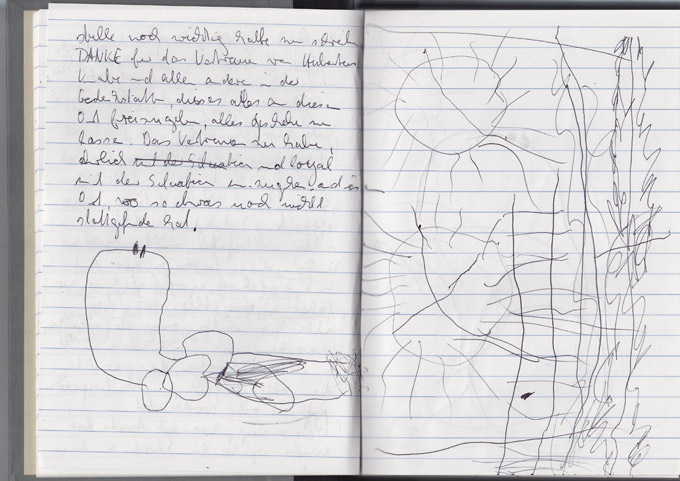 stelle noch wichtig halte zu schreiben
DANKE für das Vertrauen von Hubertus
und alle andere in der
Gedenkstätte, dieses alles an diesem
Ort freizugeben, alles geschehen zu
lassen. Das Vertrauen zu haben,
ehrlich mit der Situation und loyal
mit der Situation umzugehen an diesem
Ort, wo so etwas noch nicht
stattgefunden hat.